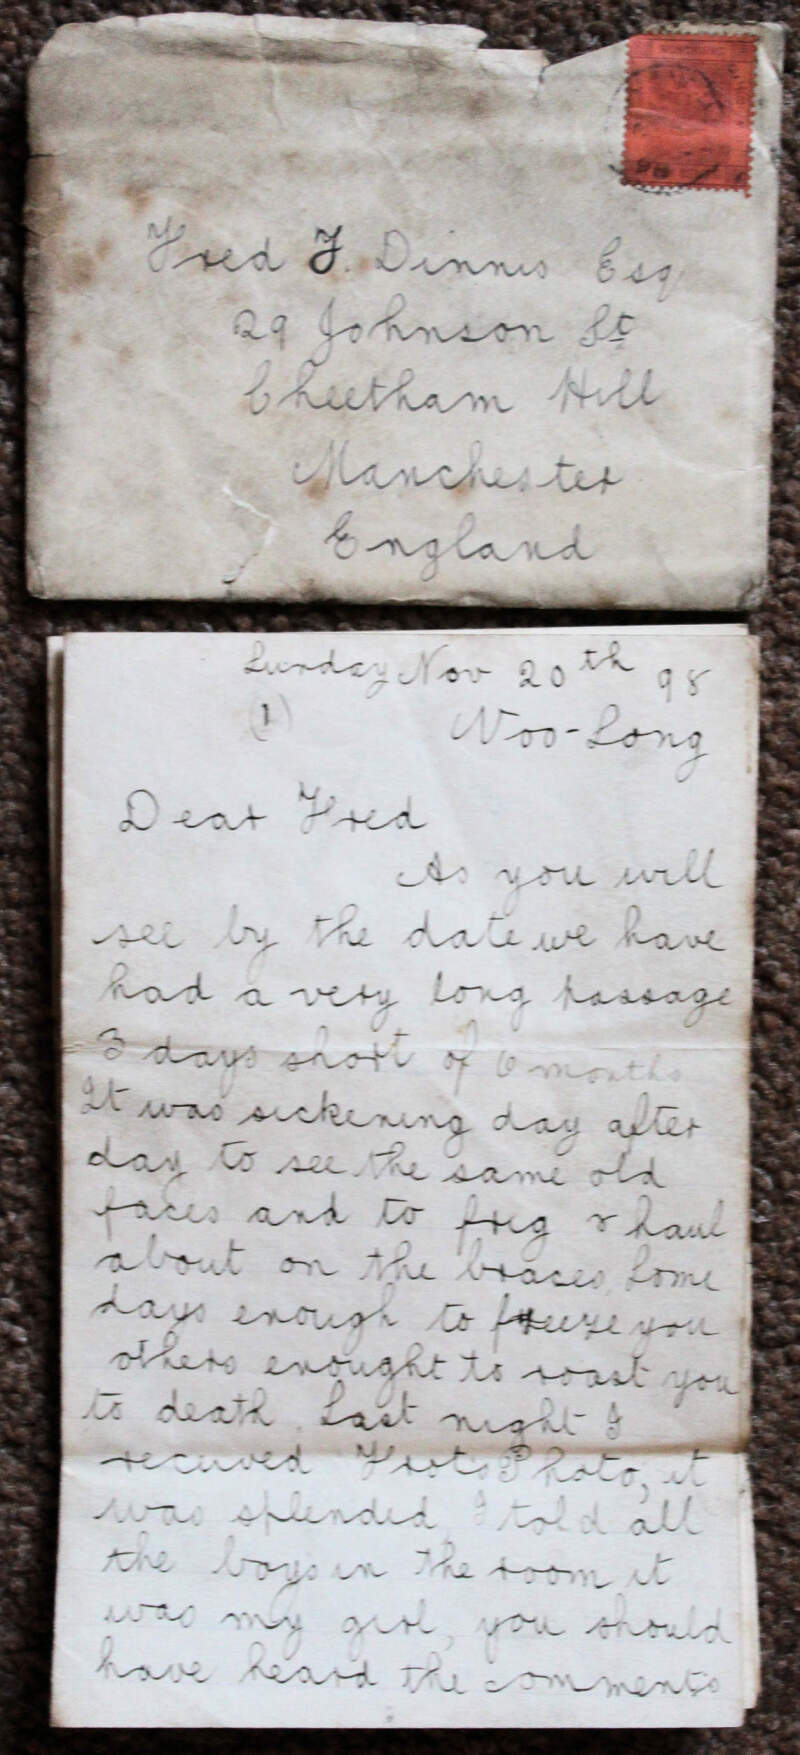 Fred F. Dinnis Esq
29 Johnson St
Cheetham Hill
Manchester
England
Sunday Nov 20th 98
(1) Woo-Song
Dear Fred
As you will
see by the date we have
had a very long passage
3 days short of 6 months
It was sickening day after
day to see the same old
faces and to frig & haul
about on the braces, Some
days enough to freeze you
others enought to roast you
to death. Last night I
received Frots Photo, it
was splended, I told all
the boys in the room it
was my girl, you should
have heard the comments